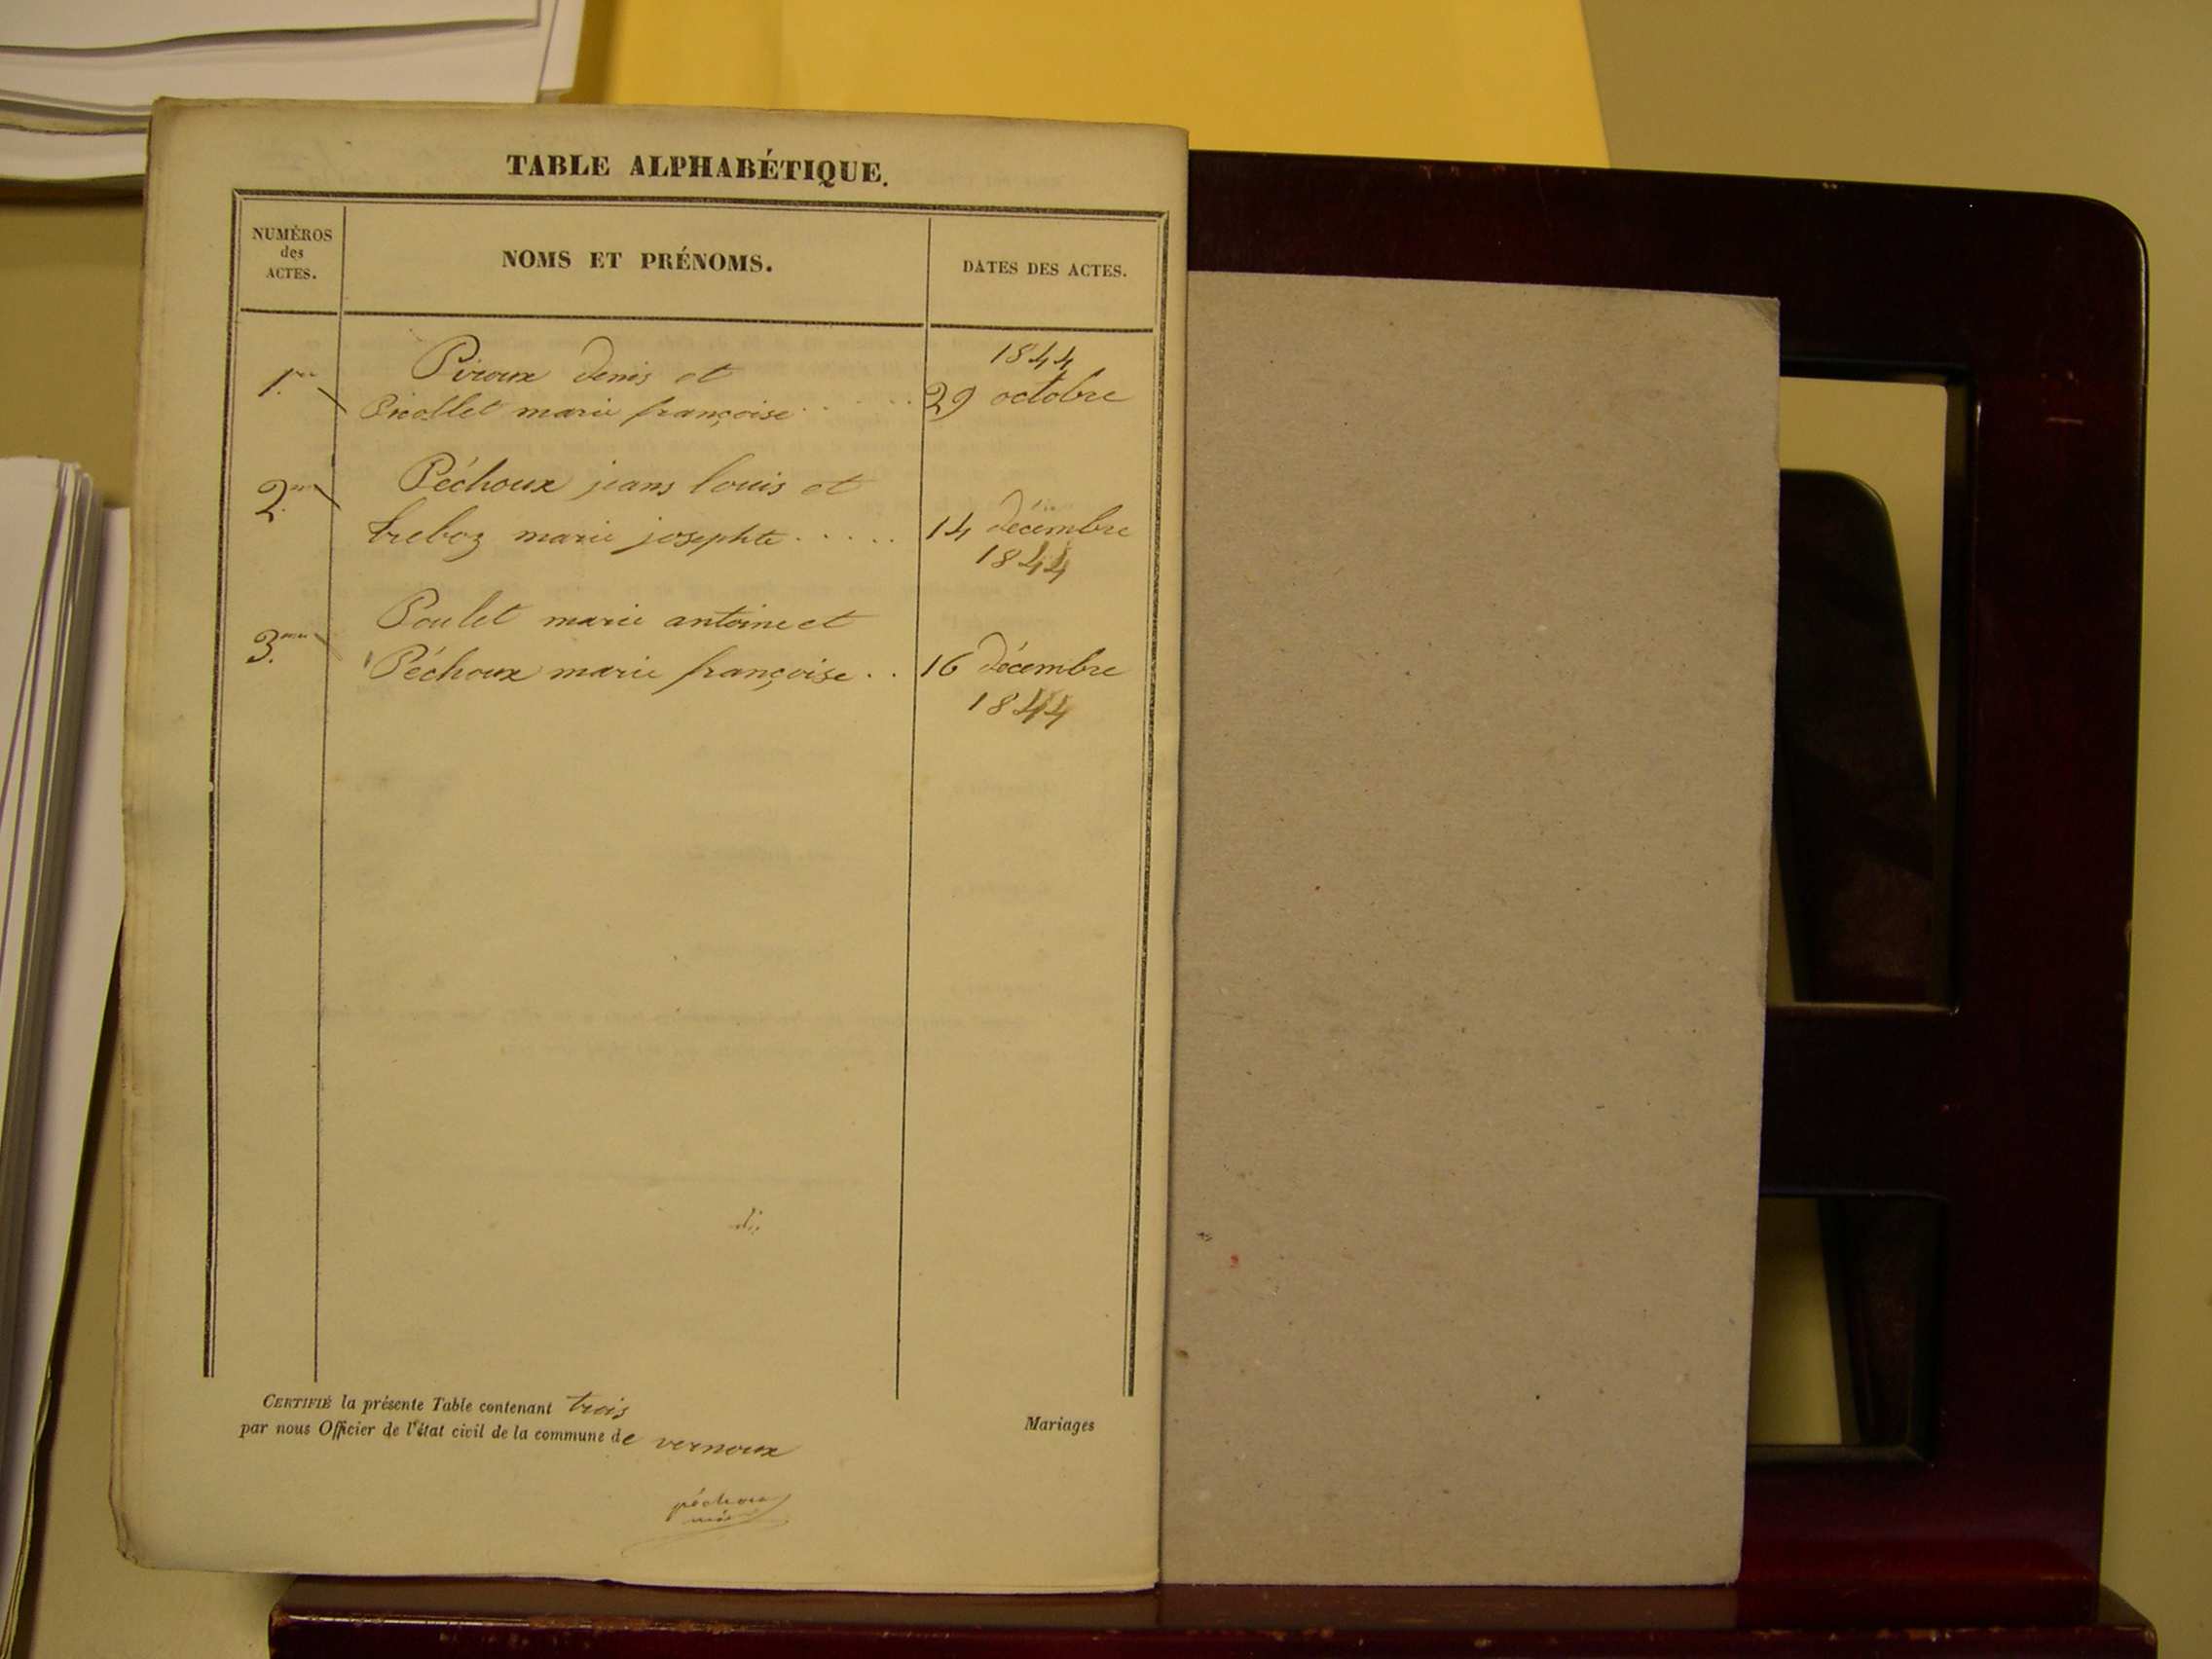 TABLE ALPHABÉTIQUE.
NUMÉROS
des
ACTES.
NOMS ET PRÉNOMS.
DATES DES ACTES.
1844
1.re Piroux denis et
Picollet marie françoise . . . . . . 29 octobre
2.me Péchoux jeans louis et
treboz marie josephte . . . . . 14 décembre
1844
3.me Poulet marie antoine et
Péchoux marie françoise . . 16 décembre
1844
di
CERTIFIÉ la présente Table contenant trois Mariages
par nous Officier de l'état civil de la commune de vernoux
péchoux